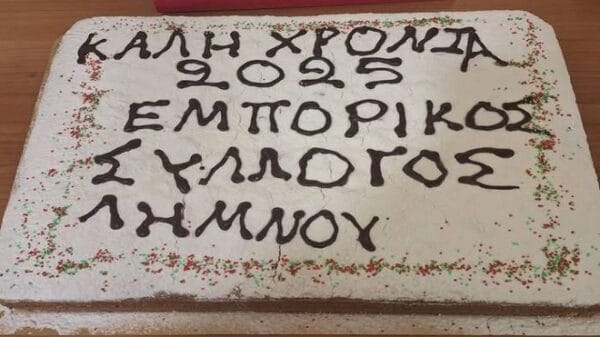 ΚΑΛΗ ΧΡΟΝΙΑ
2025
ΕΜΠΟΡΙΚΟΣ
ΣΥΛΛΟΓΟΣ
ΛΗΜΝΟΥ